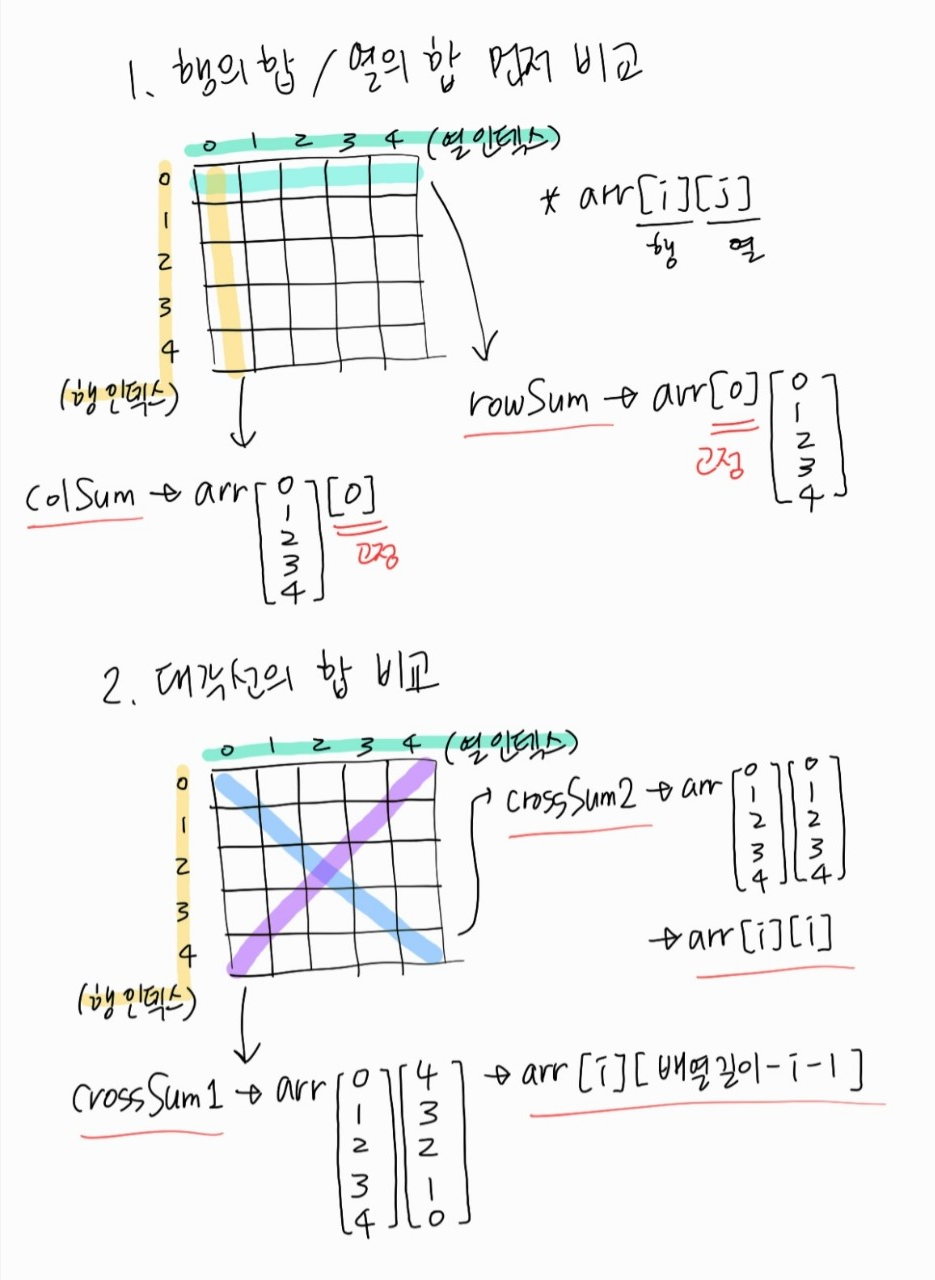 1. 행의 합 / 열의 합 먼저 비교
0 1 2 3 4 (열 인덱스)
0
1
2
3
4
(행 인덱스)
* arr[i][j]
행 열
rowSum → arr[0][0 1 2 3 4]
고정
colSum → arr[0 1 2 3 4][0]
고정
2. 대각선의 합 비교
0 1 2 3 4 (열 인덱스)
0
1
2
3
4
(행 인덱스)
crossSum2 → arr[0 1 2 3 4][0 1 2 3 4]
→ arr[i][i]
crossSum1 → arr[0 1 2 3 4][4 3 2 1 0] → arr[i][배열길이-i-1]